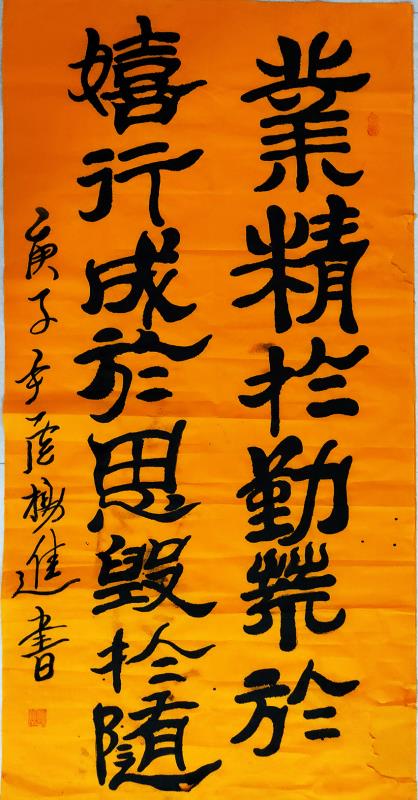 業精於勤荒於
嬉行成於思毀於隨
庚子年楊進書